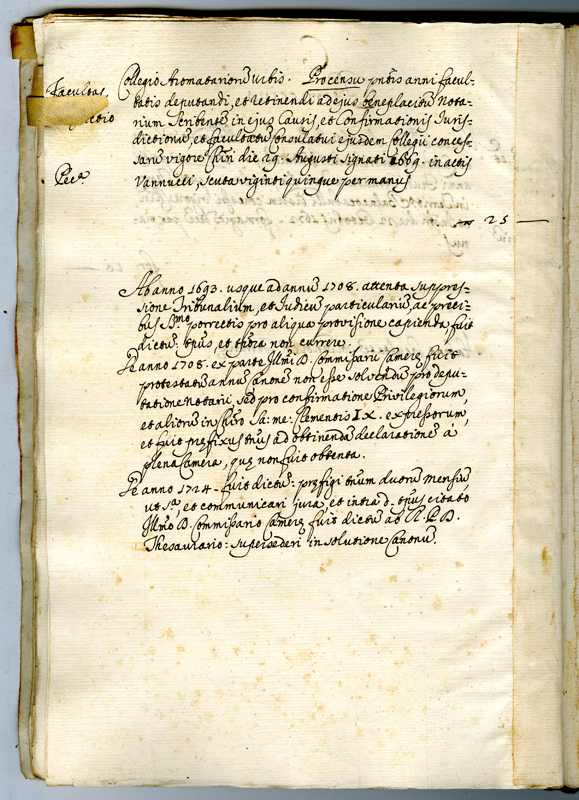 Collegio Aromatariorũ Urbis. Pro censu pñtis anni facul-
Facultas,
tatis deputandi, et retinendi ad ejus beneplacitũ Nota-
rium scribente in ejus Causis, et Confirmationis Juris-
dictionũ, et facultatũ Consulatui ejusdem Collegii conces-
sarũ vigore Chiri die 29: Augusti signati 1669. in actis
Pec.ª
Vannucci, scuta viginti quinque per manus
25 —
Ab anno 1693. usque ad annũ 1708. attenta suppres-
sione Tribunalium, et Judicũ particulariũ, ac preci-
bus SS.mo porrectis pro aliqua provisione capienda, fuit
dictũ: tp̃us, et fĩa non currere.
De anno 1708. ex parte Illm̃i D. Commissarii Cameræ fuit
protestatũ annuũ Canonẽ non esse solvendũ pro depu-
tatione Notarii, sed pro confirmatione Privilegiorum,
et aliorũ in Chiro sa: me: Clementis IX. expressorum,
et fuit præfixus tñus ad obtinendã declarationẽ à
plena Camera, quę non fuit obtenta.
De anno 1724. fuit dictũ: præfigi tñum duorũ mensiũ
ut s.ª, et communicari jura, et intra d. tp̃us citato
Illmo D. Commissario Cameræ fuit dictũ ab R. P. D.
Thesaurario: supersederi in solutione Canonũ.